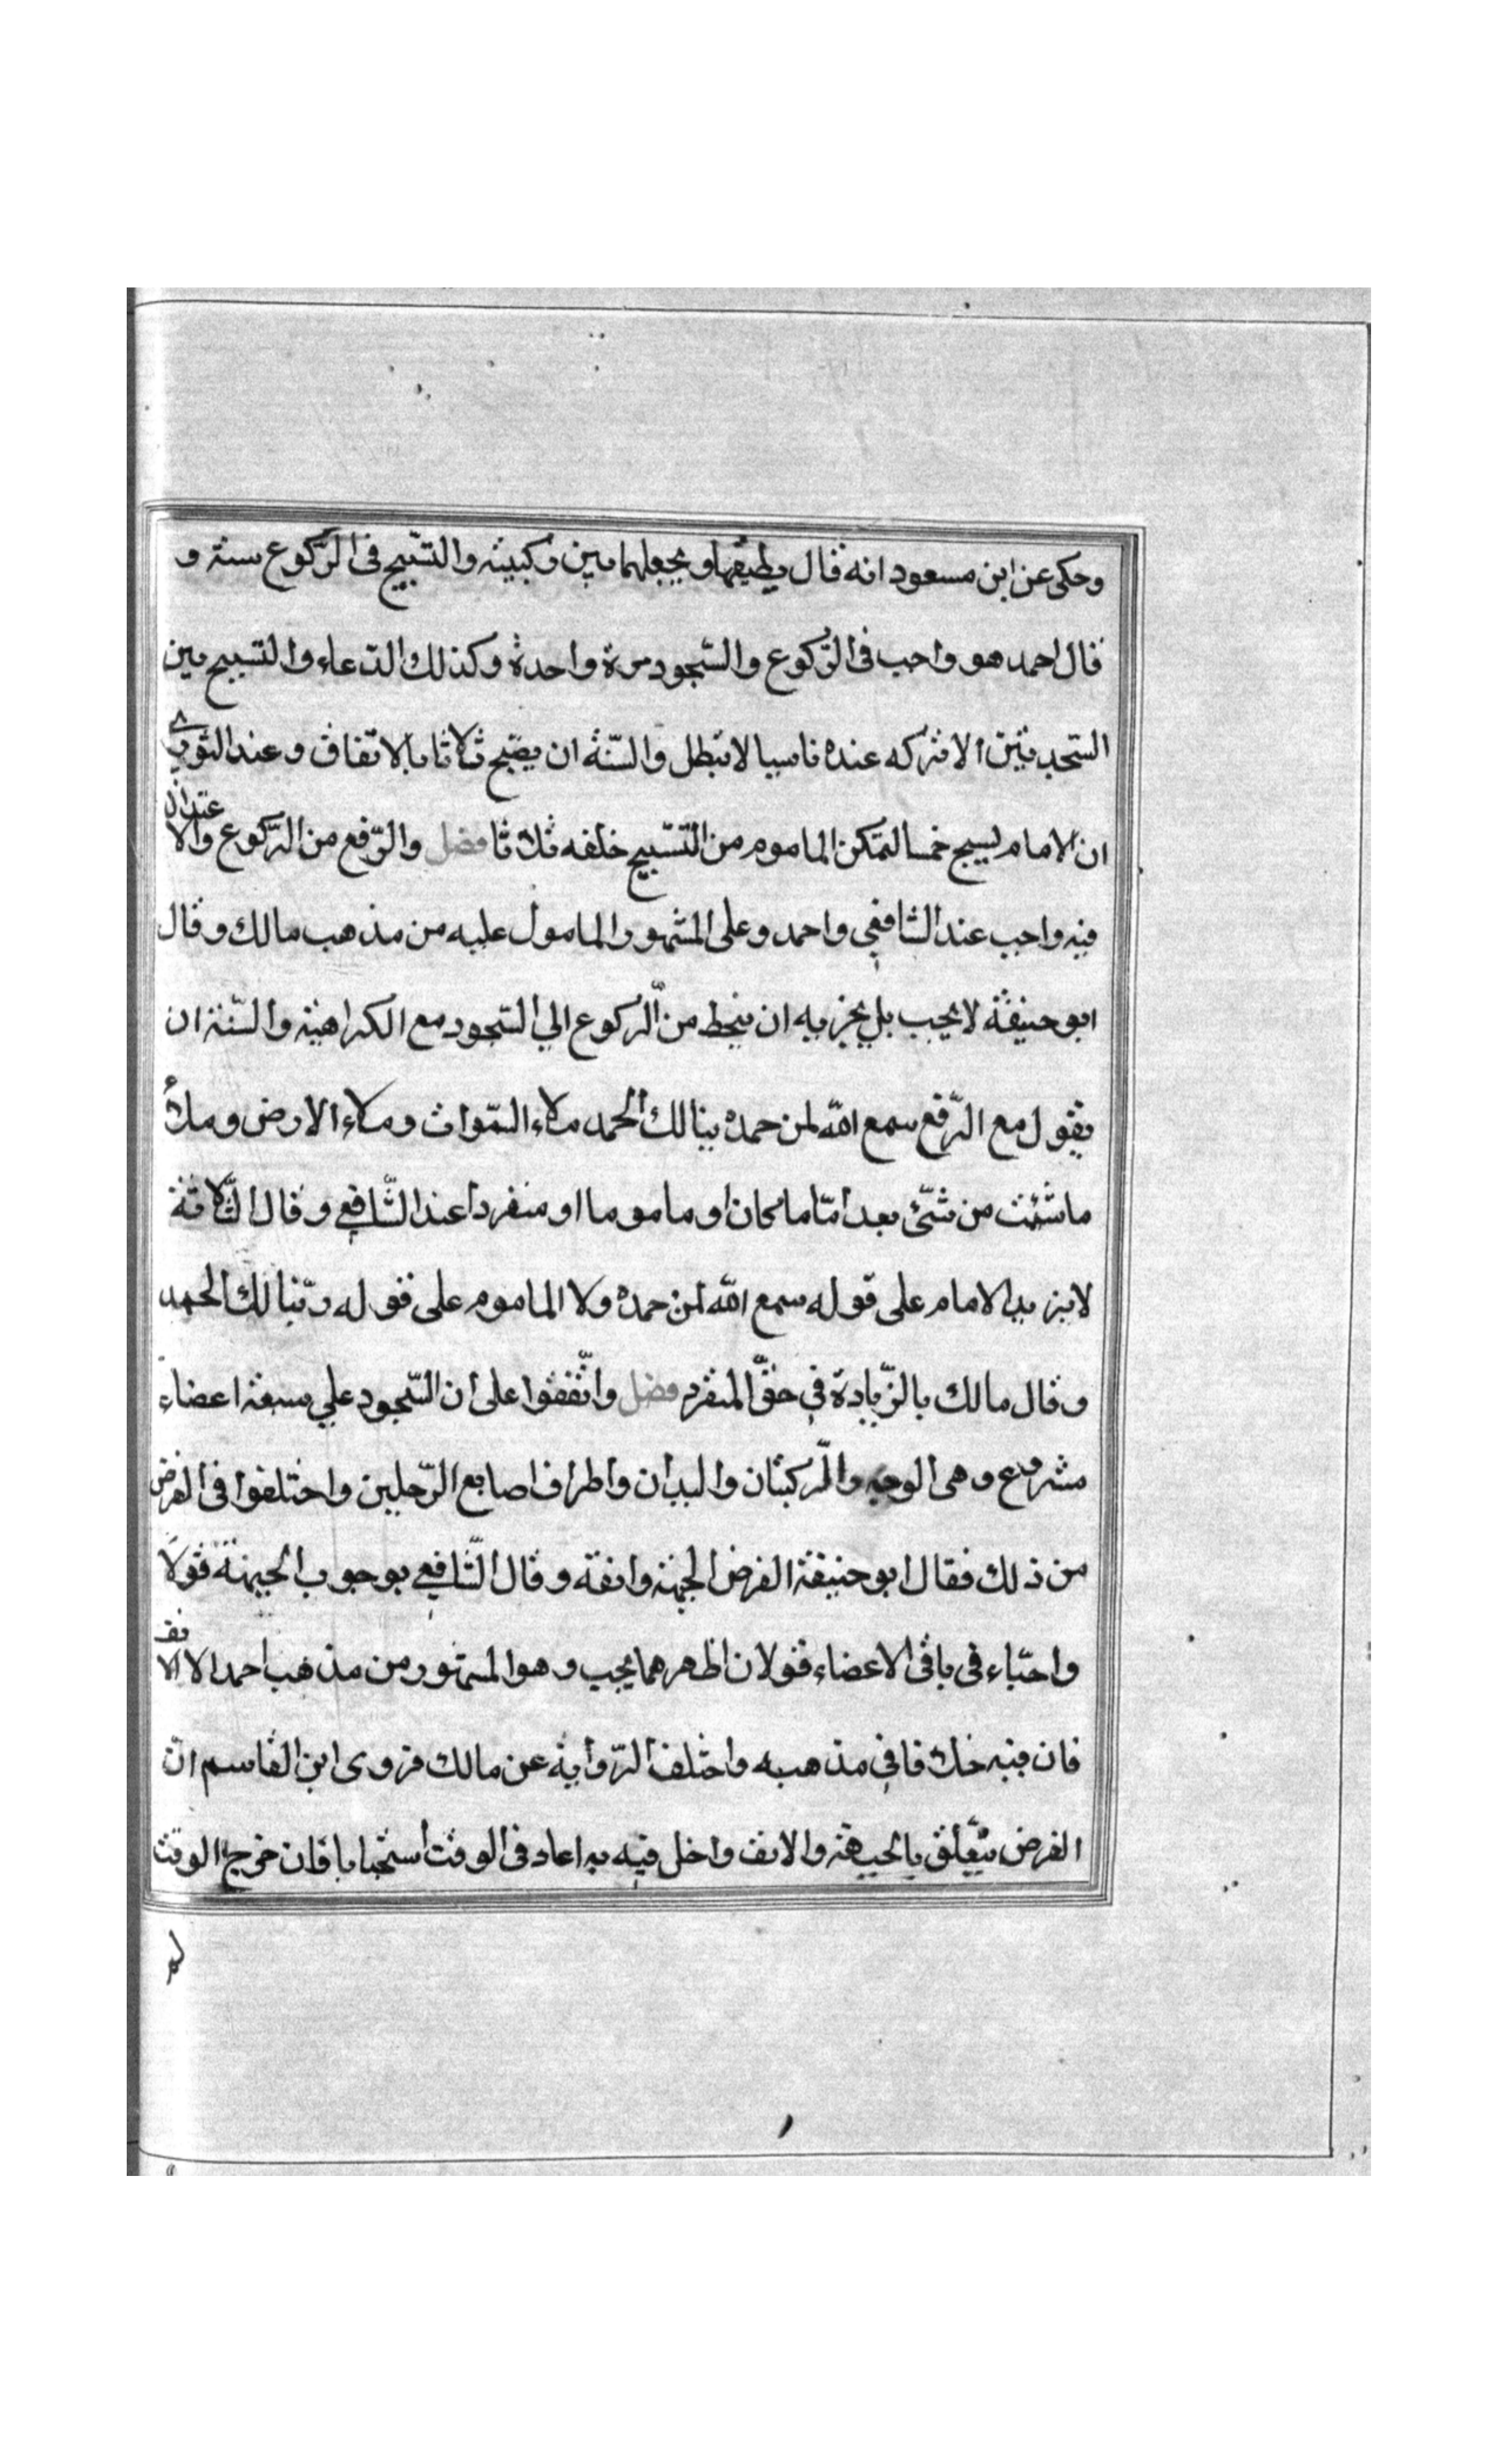 وحكى عن ابن مسعود انه قال يطبقها ويجعلهما بين ركبيته والتسبيح فى الرّكوع سنة و
قال احمد هو واجب فى الرّكوع والسّجود مرة واحدة وكذلك الدّعاء والتسبيح بين
السّجدتين الا ان تركه عنده ناسيا لا تبطل والسّنة ان يصبّح ثلاثا بالاتّفاق وعند الثوري
ان الامام يسبح خمسا لتمكن الماموم من التّسبيح خلفه ثلاثا فصل والرّفع من الرّكوع والاعتدال
فيه واجب عند الشافعي واحمد وعلى المشهور المامول عليه من مذهب مالك وقال
ابو حنيفة لا يجب بل يجزيه ان ينحط من الرّكوع الي السّجود مع الكراهية والسّنة ان
يقول مع الرّفع سمع الله لمن حمده بنا لك الحمد ملاء السّموات وملاء الارض وملأ
ما شئت من شئ بعد امّاما كان او ماموما او منفردا عند الشّافعي وقال الثّلاثة
لا يزيد الامام على قوله سمع الله لمن حمده ولا الماموم على قوله ربّنا لك الحمد
وقال مالك بالزّيادة في حقّ المنفرد فصل واتّفقوا على ان السّجود علي سبعة اعضاء
مشروع وهى الوجه والرّكبتان واليدان واطراف اصابع الرّجلين واختلفوا فى الفرض
من ذلك فقال ابو حنيفة الفرض الجبهة وانفه وقال الشّافعي بوجوب الجبهة قولا
واحدا وفى باقى الاعضاء قولان اظهرهما يجب وهو المشهور من مذهب احمد الا الانف
فان فيه خلافا في مذهبه واختلف الرّواية عن مالك فروى ابن القاسم انّ
الفرض يتعّلق بالجبهة والانف واخل فيه به اعاد فى الوقت استحبابا فان خرج الوقت
لم